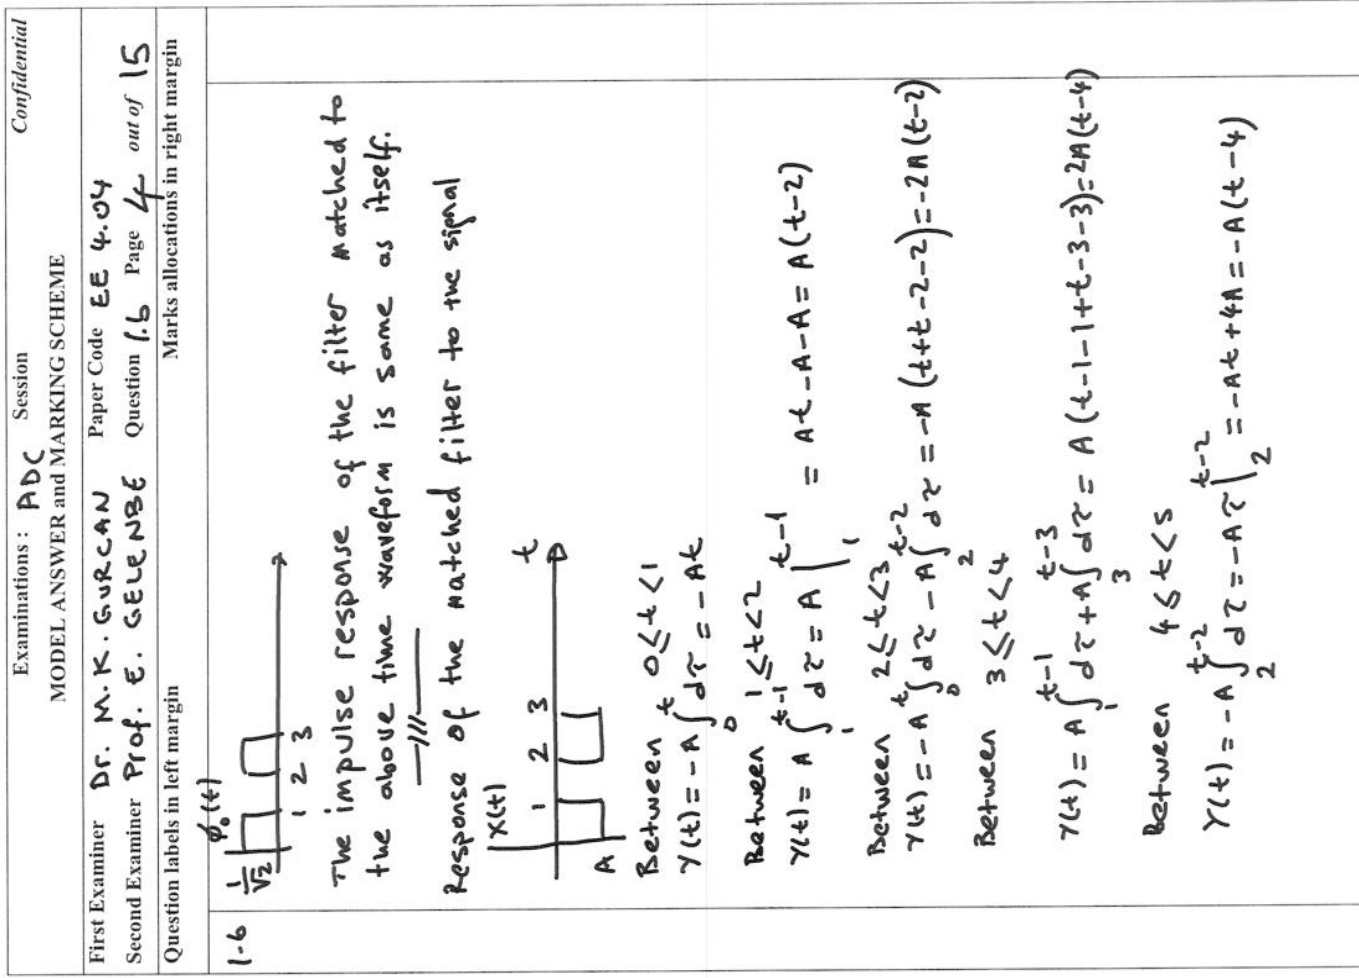 Examinations : ADC Session Confidential
MODEL ANSWER and MARKING SCHEME
First Examiner Dr. M. K. GURCAN Paper Code EE 4.04
Second Examiner Prof. E. GELENBE Question 1.b Page 4 out of 15
Question labels in left margin Marks allocations in right margin
1-b
ϕ₀(t)
1/√2
1 2 3
The impulse response of the filter matched to
the above time waveform is same as itself.
—///—
Response of the matched filter to the signal
X(t)
1 2 3 t
A
Between 0≤t<1
Y(t) = -A ∫₀ᵗ dτ = -At
Between 1≤t<2
Y(t) = A ∫₁ᵗ⁻¹ dτ = A |₁ᵗ⁻¹ = At-A-A = A(t-2)
Between 2≤t<3
Y(t) = -A ∫₀ᵗ dτ - A ∫₂ᵗ⁻² dτ = -A(t+t-2-2) = -2A(t-2)
Between 3≤t<4
Y(t) = A ∫₁ᵗ⁻¹ dτ + A ∫₃ᵗ⁻³ dτ = A(t-1-1+t-3-3) = 2A(t-4)
Between 4≤t<5
Y(t) = -A ∫₂ᵗ⁻² dτ = -Aτ |₂ᵗ⁻² = -At+4A = -A(t-4)